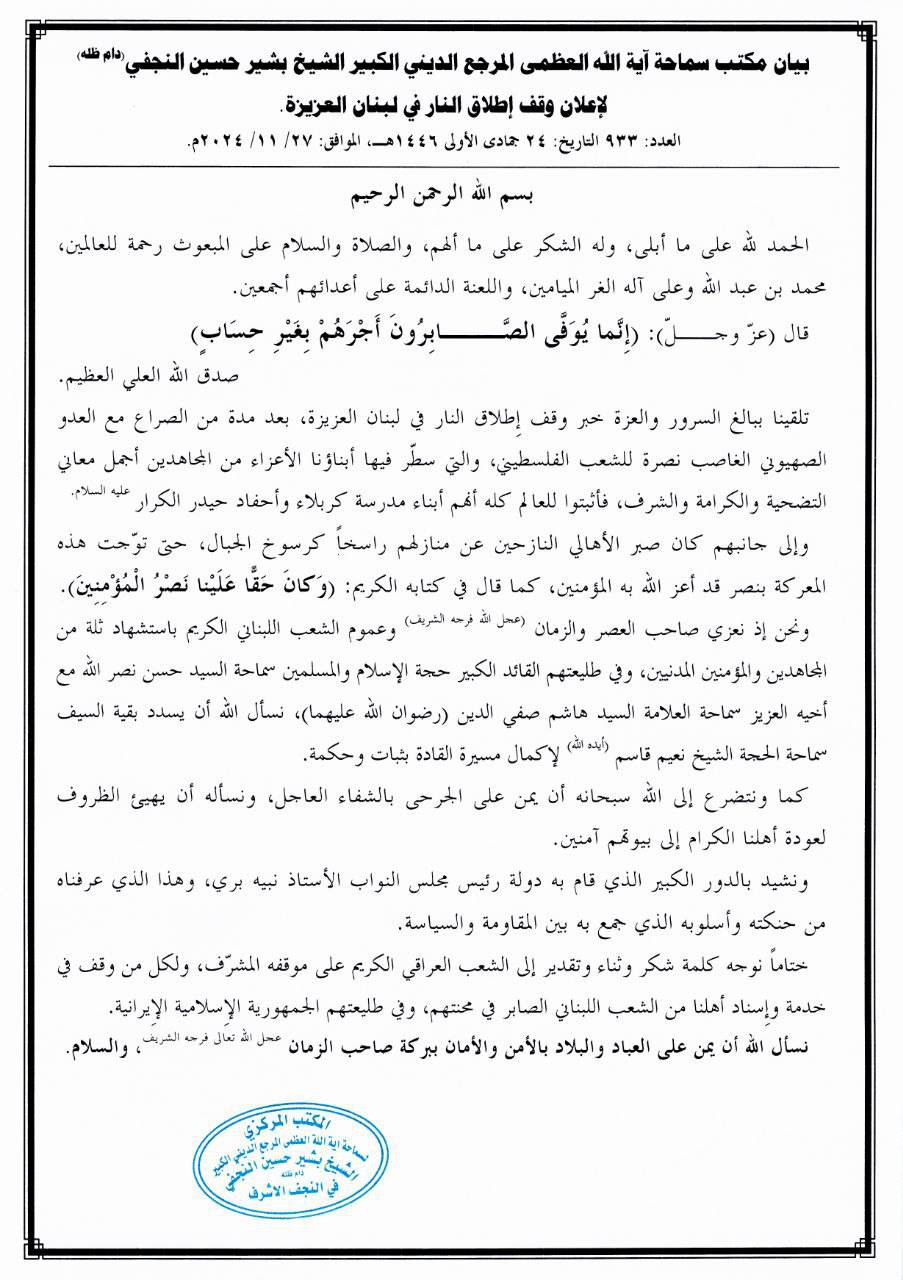 بيان مكتب سماحة آية الله العظمى المرجع الديني الكبير الشيخ بشير حسين النجفي (دام ظله)
لإعلان وقف إطلاق النار في لبنان العزيزة.
العدد: ٩٣٣ التاريخ: ٢٤ جمادى الأولى ١٤٤٦هـ، الموافق: ٢٧/ ١١/ ٢٠٢٤م.
بسم الله الرحمن الرحيم
الحمد لله على ما أبلى، وله الشكر على ما ألهم، والصلاة والسلام على المبعوث رحمة للعالمين،
محمد بن عبد الله وعلى آله الغر الميامين، واللعنة الدائمة على أعدائهم أجمعين.
قال (عزّ وجـــــلّ): (إِنَّما يُوَفَّى الصَّـــــــابِرُونَ أَجْرَهُمْ بِغَيْرِ حِسَابٍ)
صدق الله العلي العظيم.
تلقينا ببالغ السرور والعزة خبر وقف إطلاق النار في لبنان العزيزة، بعد مدة من الصراع مع العدو
الصهيوني الغاصب نصرة للشعب الفلسطيني، والتي سطّر فيها أبناؤنا الأعزاء من المجاهدين أجمل معاني
التضحية والكرامة والشرف، فأثبتوا للعالم كله أنهم أبناء مدرسة كربلاء وأحفاد حيدر الكرار عليه السلام.
وإلى جانبهم كان صبر الأهالي النازحين عن منازلهم راسخاً كرسوخ الجبال، حتى توّجت هذه
المعركة بنصر قد أعز الله به المؤمنين، كما قال في كتابه الكريم: (وَكانَ حَقًّا عَلَيْنا نَصْرُ الْمُؤْمِنِينَ).
ونحن إذ نعزي صاحب العصر والزمان (عجل الله فرجه الشريف) وعموم الشعب اللبناني الكريم باستشهاد ثلة من
المجاهدين والمؤمنين المدنيين، وفي طليعتهم القائد الكبير حجة الإسلام والمسلمين سماحة السيد حسن نصر الله مع
أخيه العزيز سماحة العلامة السيد هاشم صفي الدين (رضوان الله عليهما)، نسأل الله أن يسدد بقية السيف
سماحة الحجة الشيخ نعيم قاسم (أيده الله) لإكمال مسيرة القادة بثبات وحكمة.
كما ونتضرع إلى الله سبحانه أن يمن على الجرحى بالشفاء العاجل، ونسأله أن يهيئ الظروف
لعودة أهلنا الكرام إلى بيوتهم آمنين.
ونشيد بالدور الكبير الذي قام به دولة رئيس مجلس النواب الأستاذ نبيه بري، وهذا الذي عرفناه
من حنكته وأسلوبه الذي جمع به بين المقاومة والسياسة.
ختاماً نوجه كلمة شكر وثناء وتقدير إلى الشعب العراقي الكريم على موقفه المشرّف، ولكل من وقف في
خدمة وإسناد أهلنا من الشعب اللبناني الصابر في محنتهم، وفي طليعتهم الجمهورية الإسلامية الإيرانية.
نسأل الله أن يمن على العباد والبلاد بالأمن والأمان ببركة صاحب الزمان عجل الله تعالى فرجه الشريف، والسلام.
المكتب المركزي
لسماحة آية الله العظمى المرجع الديني الكبير
الشيخ بشير حسين النجفي
دام ظله
في النجف الاشرف